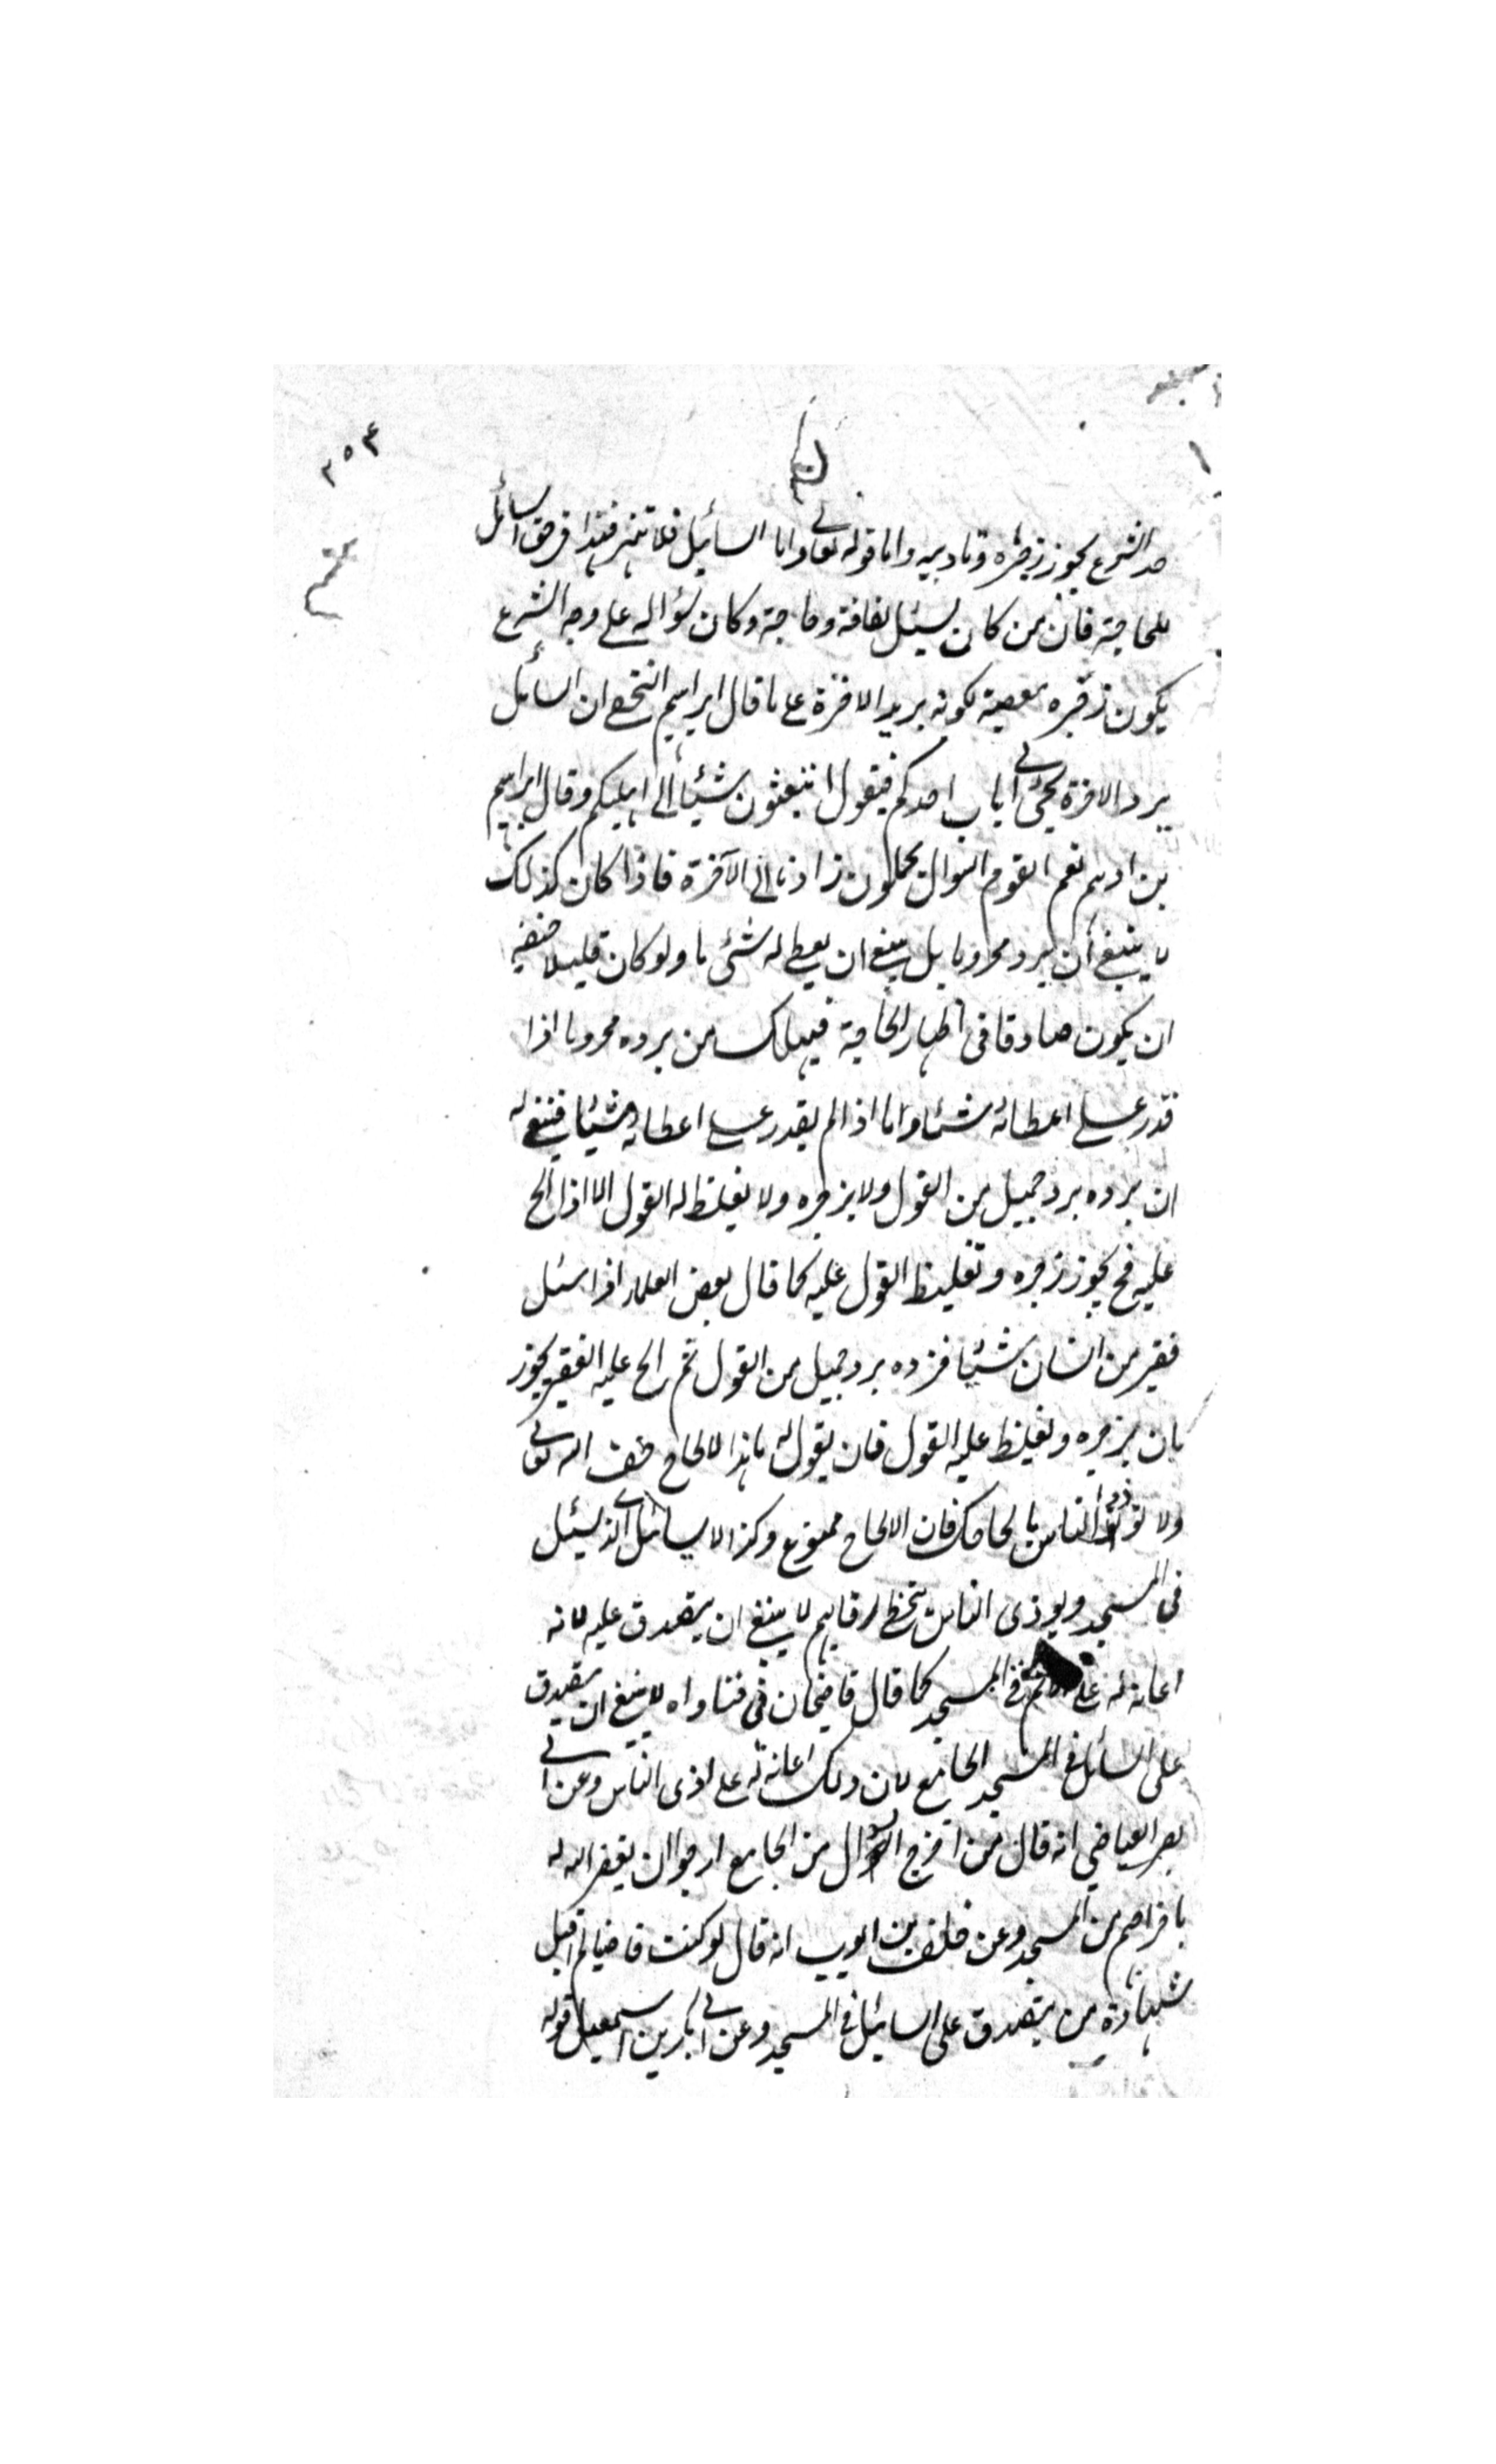 ٢٥٤
حد الشرع يجوز زجره وتاديبه واما قوله تعالى واما السائيل فلا تنهر فهذا في حق السائل
للحاجة فان من كان يسئل لفاقة وحاجة وكان سؤاله على وجه الشرع
يكون زجره معصية لكونه بريد الاخرة على ما قال ابراهيم النخعى ان السائل
بريد الاخرة يجئ الى باب احدكم فيقول اتبعثون شيئا الى اهليكم وقال ابراهيم
بن ادهم نعم القوم السوال يحملون زادنا الى الآخرة فاذا كان كذلك
لا ينبغى أن يرد محروما بل ينبغى ان يعطى له شئ ما ولو كان قليلا خيفة
ان يكون صادقا فى اظهار الحاجة فيهلك من يرده محروما اذا
قدر على اعطائه شئا واما اذا لم يقدر على اعطائه شيئا فينبغى له
ان يرده برد جميل من القول ولا يزجره ولا يغلظ له القول الا اذا الح
عليه فح يجوز زجره وتغليظ القول عليه كما قال بعض العلماء اذا سئل
فقير من انسان شيئا فرده برد جميل من القول ثم الح عليه الفقير يجوز
بان يزجره ويغلظ عليه القول فان يقول له ما هذا الالحاح خف الله تعالى
ولا تؤذ الناس بالحاحك فان الالحاح ممنوع وكذا السائل الذى يسئل
فى المسجد ويوذى الناس بتخطى رقابهم لا ينبغى ان يتصدق عليه لانه
اعانة له على الاثم فى المسجد كما قال قاضيخان فى فتاواه لا ينبغى ان يتصدق
على السائل فى المسجد الجامع لان ذلك اعانة له على اذى الناس وعن ابى
نصر العياضي انه قال من اخرج السوال من الجامع ارجو ان يغفر الله له
باخراجهم من المسجد وعن خلف بن ايوب انه قال لو كنت قاضيا لم اقبل
شهادة من يتصدق على السائل فى المسجد وعن ابى بكر بن اسمعيل قوله